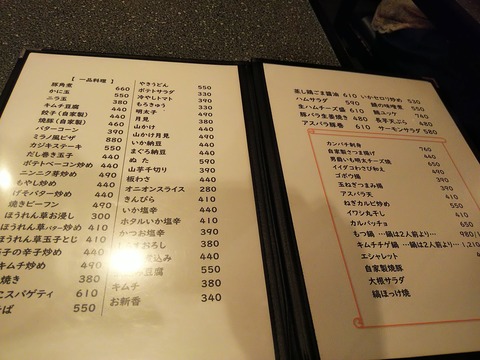 [ 一品料理 ]
豚角煮 660
かに玉 550
ニラ玉 380
キムチ豆腐 440
餃子(自家製) 440
焼豚(自家製) 460
バターコーン 390
ミラノ風ピザ 880
カジキステーキ 550
だし巻き玉子 440
ポテトベーコン炒め 440
ニンニク芽炒め 490
もやし炒め 440
げそバター炒め 440
焼きビーフン 490
ほうれん草お浸し 300
ほうれん草バター炒め 410
ほうれん草玉子とじ 410
辛子炒め 440
キムチ炒め 490
焼き 380
スパゲティ 610
そば 550
やきうどん 550
ポテトサラダ 330
冷やしトマト 390
もろきゅう 330
明太子 490
月見 380
山かけ 440
山かけ月見 490
いか納豆 440
まぐろ納豆 440
ぬた 590
山芋千切り 390
板わさ 440
オニオンスライス 280
きんぴら 410
いか塩辛 440
ホタルいか塩辛 410
かつお塩辛 390
おろし 380
込み 440
豆腐 550
キムチ 380
お新香 340
蒸し鶏ごま醤油 610
ハムサラダ 590
生ハムチーズ盛 610
豚バラ生姜焼き 480
アスパラ豚巻 480
いかセロリ炒め 530
鯖の味噌煮 550
鮪ユッケ 740
長芋天ぷら 480
サーモンサラダ 580
カンパチ刺身 760
自家製さつま揚げ 440
男爵いも明太チーズ焼 440
イイダコわさび和え 490
ゴボウ揚 390
玉ねぎつまみ揚 390
アスパラ天 450
ねぎカルビ炒め 550
イワシ丸干し 410
カルパッチョ 450
もつ鍋 …鍋は2人前より… 980/
キムチチゲ鍋 …鍋は2人前より… 1,210
エシャレット 440
自家製焼豚
大根サラダ
縞ほっけ焼